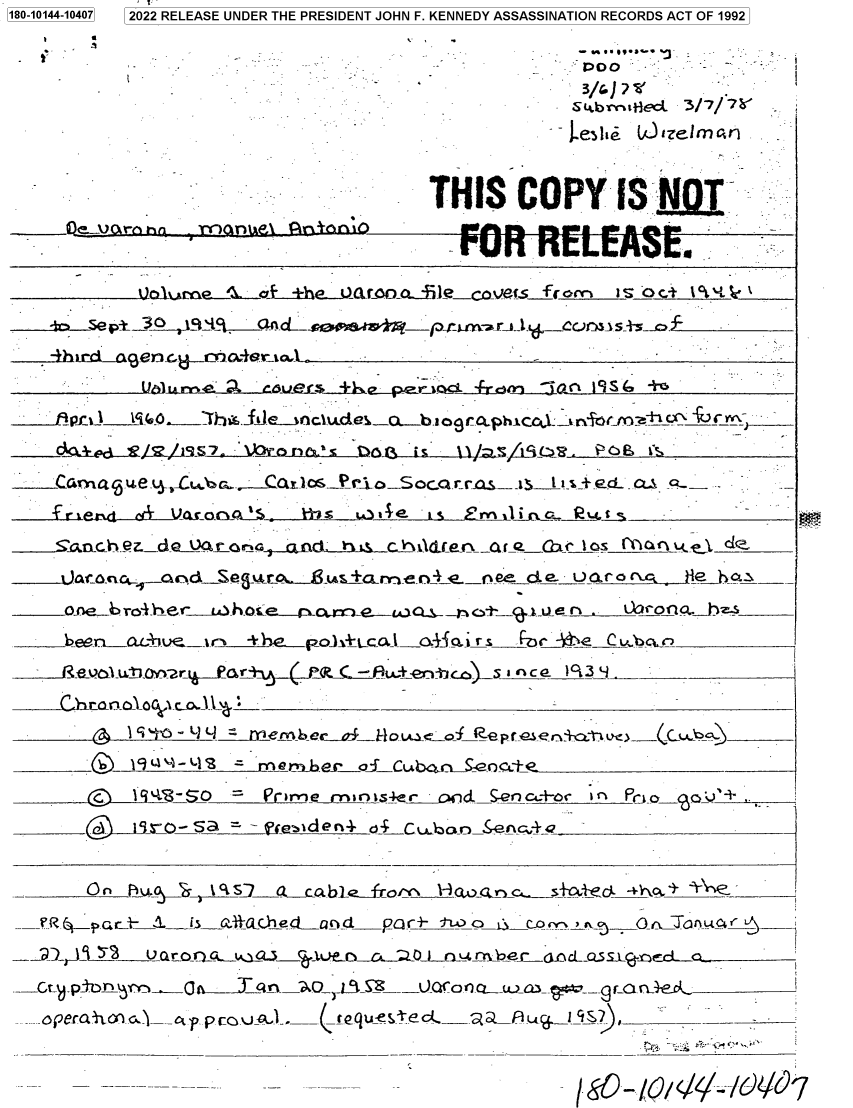 180-10144-10407
2022 RELEASE UNDER THE PRESIDENT JOHN F. KENNEDY ASSASSINATION RECORDS ACT OF 1992
DDO
3/6/78
Submitted 3/7/78
Leslie Wizelman
THIS COPY IS NOT
FOR RELEASE.
De Varona, Manuel Antonio
Volume 1 of the Varona file covers from 15 Oct 1948
to Sept 30, 1949. and primarily consists of
third agency material.
Volume 2 covers the period from Jan 1956 to
April 1960. This file includes a biographical information form,
dated 8/8/1957. Varona's DOB is 11/25/1908. POB is
Camaguey, Cuba. Carlos Prio Socarras is listed as a
friend of Varona's. His wife is Emilina Ruis
Sanchez de Varona, and his children are Carlos Manuel de
Varona, and Segura Bustamente nee de Varona. He has
one brother whose name was not given. Varona has
been active in the political affairs for the Cuban
Revolutionary Party (PRC-Autentico) since 1934.
Chronologically:
(a) 1940-44 = member of House of Representatives (Cuba)
(b) 1944-48 = member of Cuban Senate
(c) 1948-50 = Prime minister and Senator in Prio gov't.
(d) 1950-52 = President of Cuban Senate
On Aug 8, 1957 a cable from Havana stated that the
PRQ part 1 is attached and part two is coming. On January
27, 1958 Varona was given a 201 number and assigned a
cryptonym. On Jan 20, 1958 Varona was granted
operational approval. (requested 22 Aug 1957).
180-10144-10407